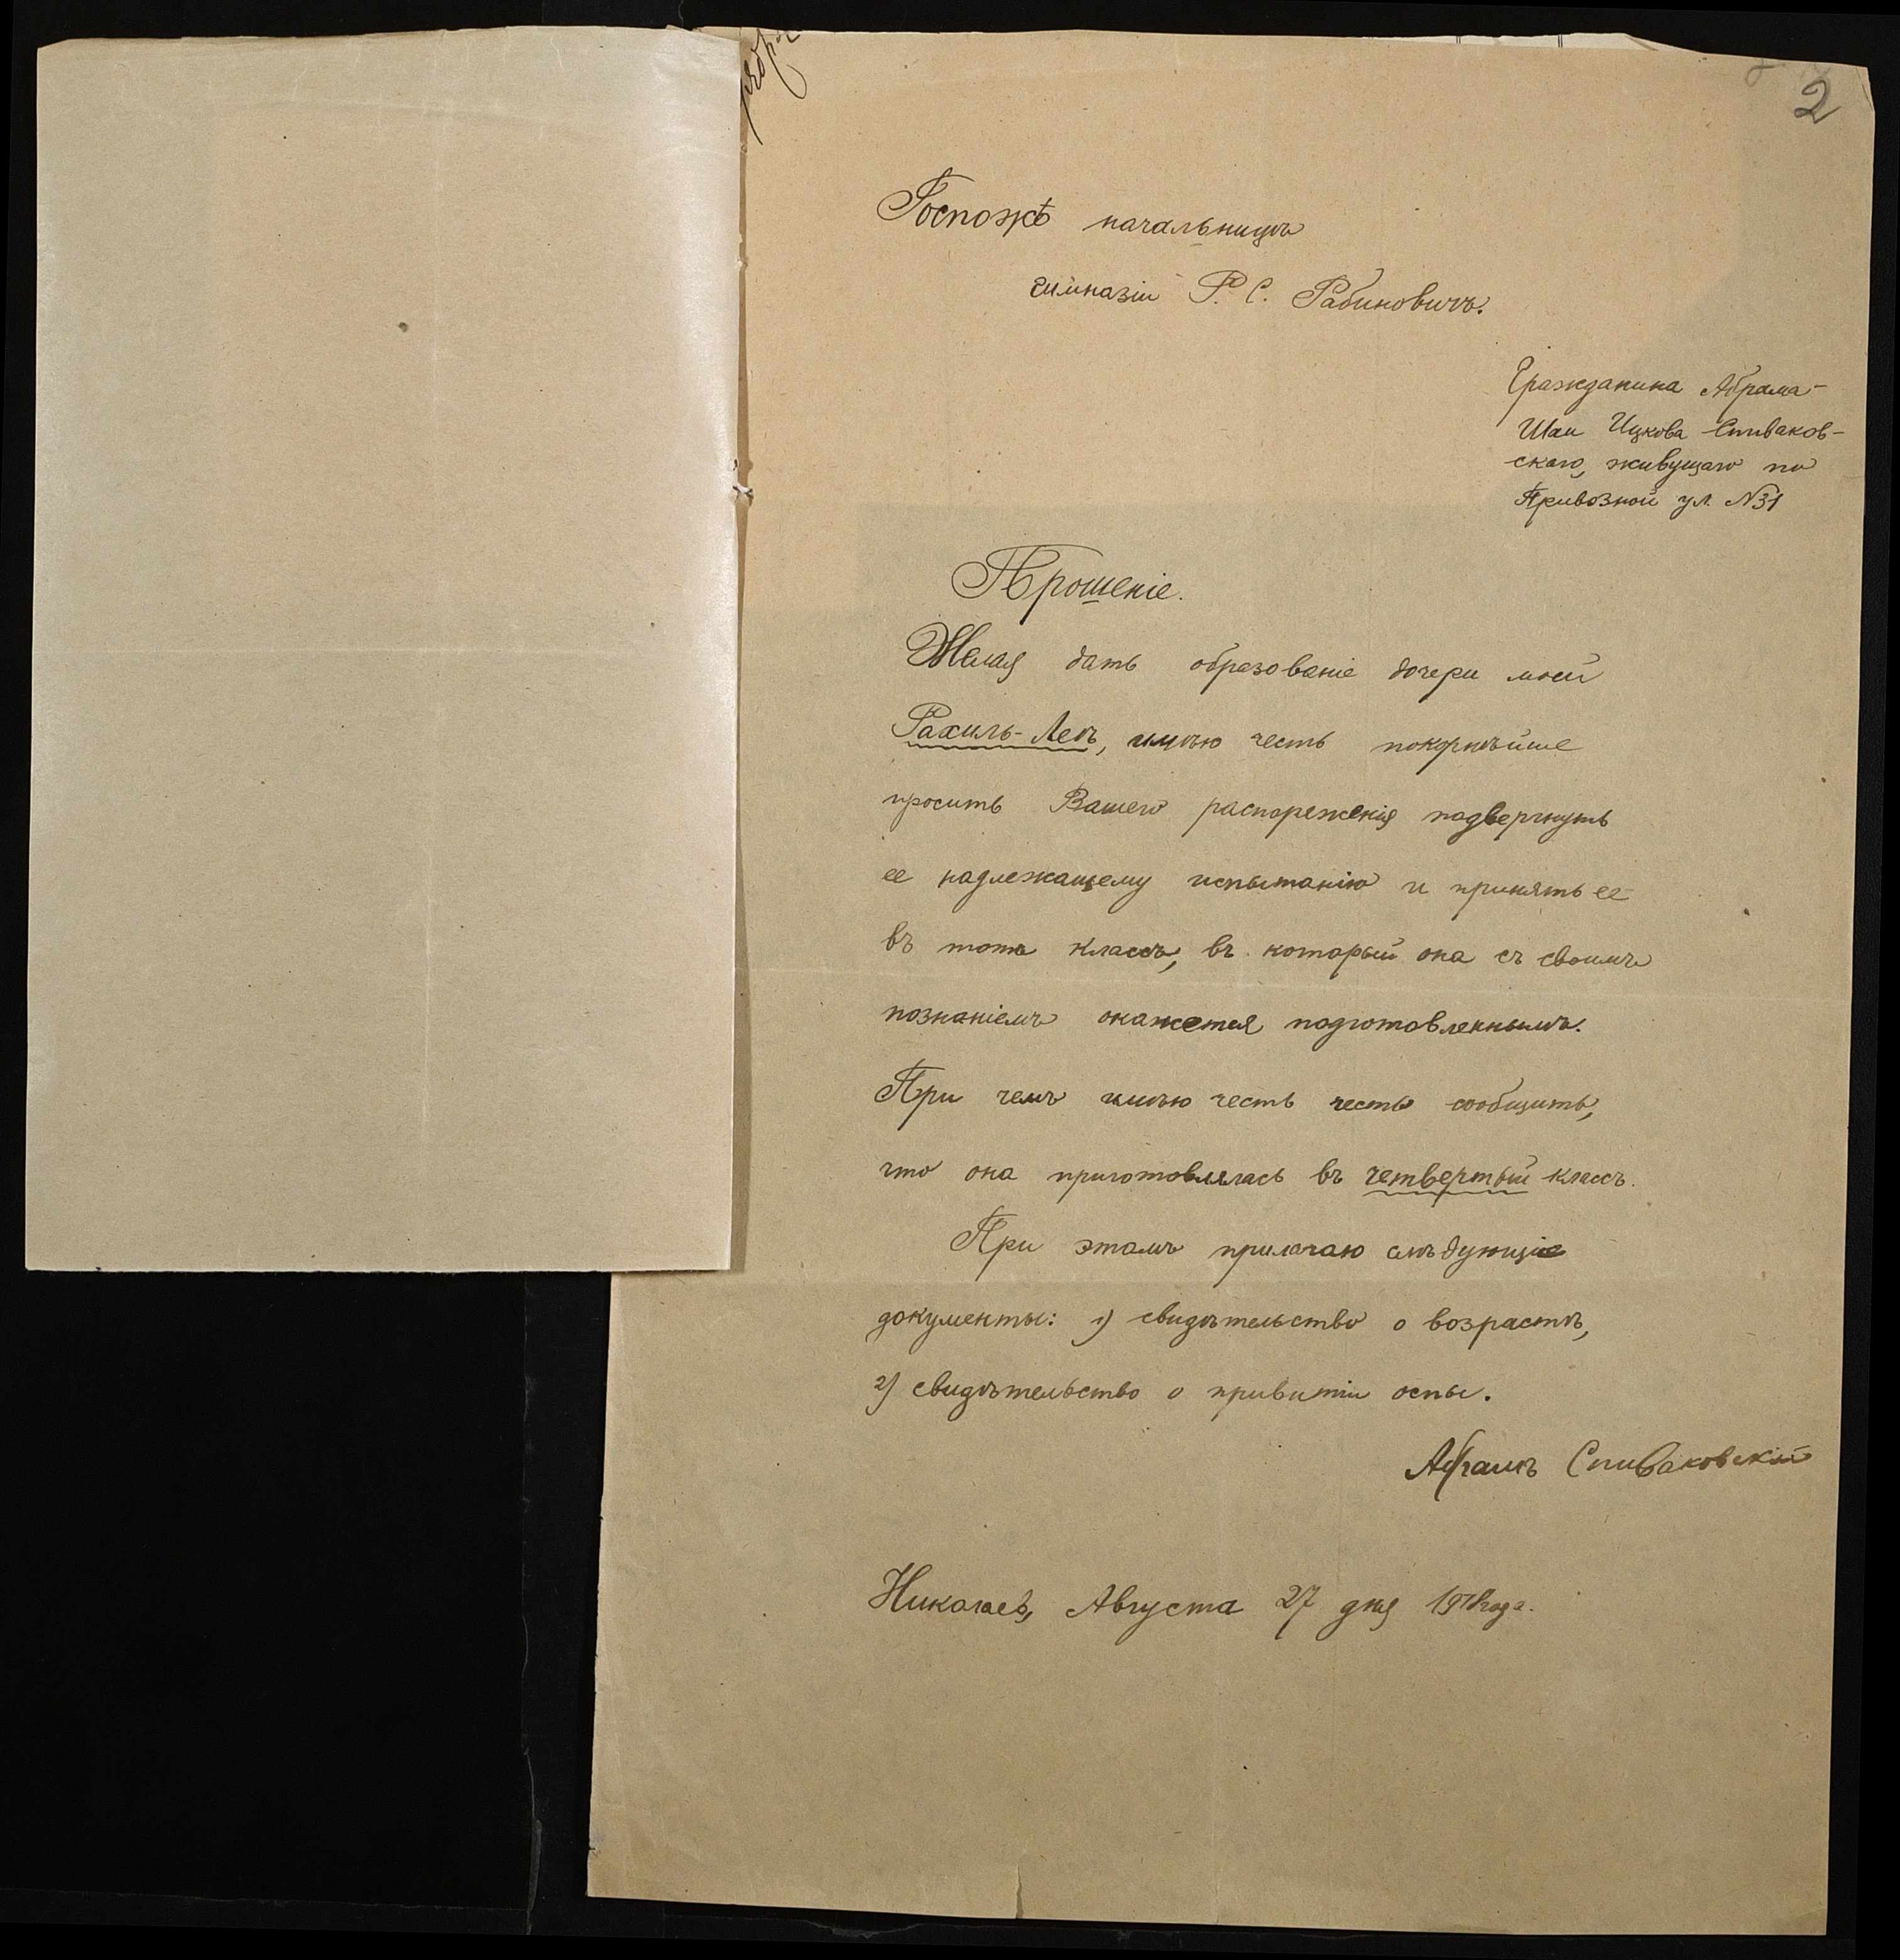 2
Госпожѣ начальницѣ
гимназіи Р. С. Рабиновичъ.
Гражданина Абрама-
Шаи Ицкова Спиваков-
скаго, живущаго по
Привозной ул. №31
Прошеніе.
Желая дать образованіе дочери моей
Рахиль-Леѣ, имѣю честь покорнѣйше
просить Вашего распореженія подвергнуть
ее надлежащему испытанію и принять ее
въ тотъ классъ, въ который она съ своимъ
познаніемъ окажется подготовленнымъ.
При чемъ имѣю честь честь сообщить,
что она приготовлялась въ четвертый классъ.
При этомъ прилагаю слѣдующіе
документы: 1) свидѣтельство о возрастѣ,
2) свидѣтельство о привитіи оспы.
Абрамъ Спиваковскій
Николаевъ, Августа 27 дня года.